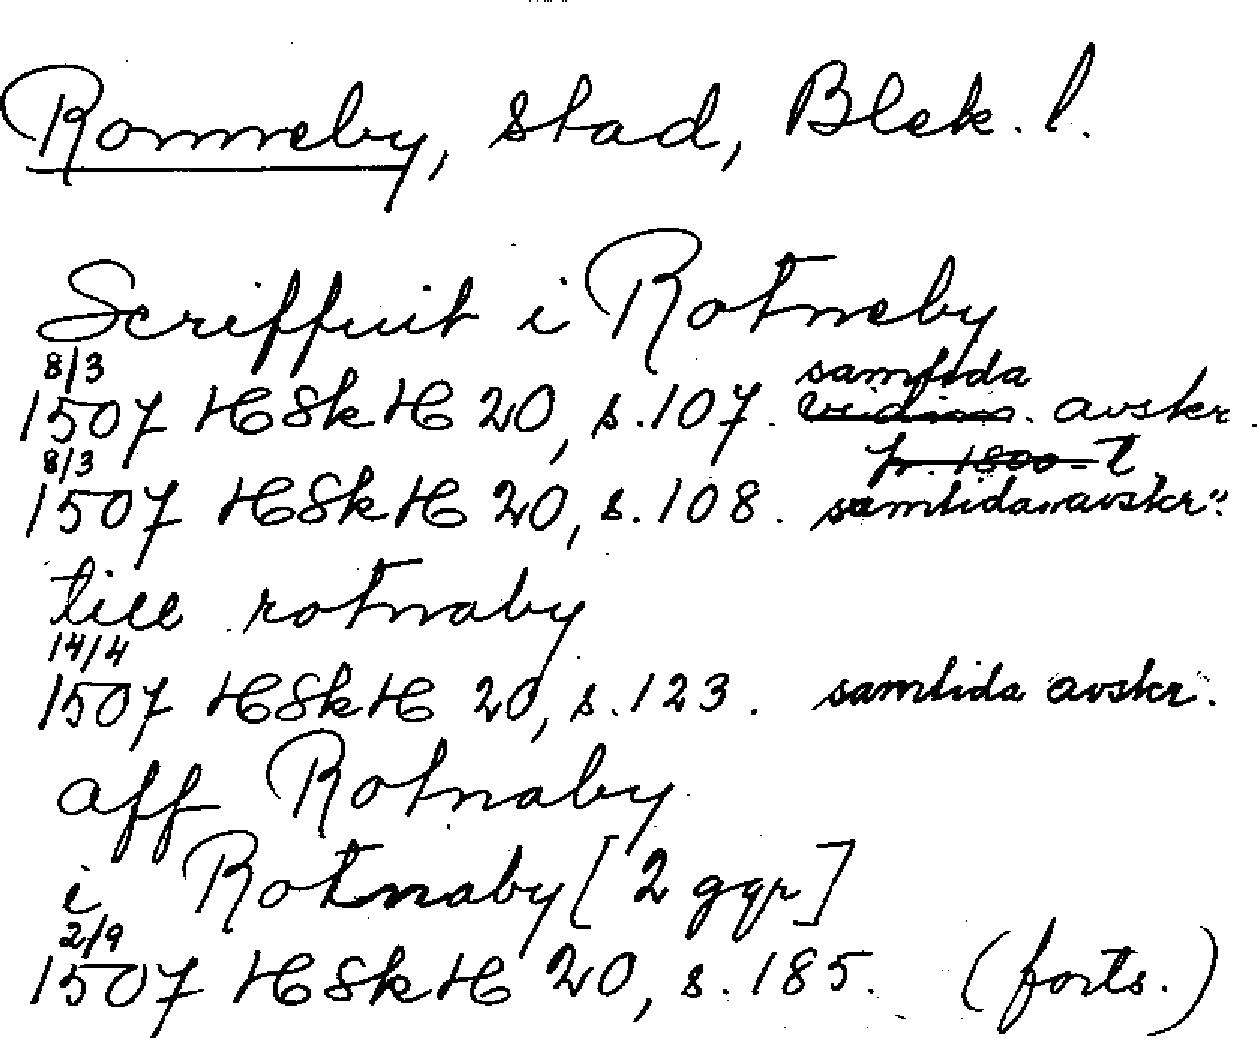 Ronneby, stad, Blek. l.
Scriffuit i Rotneby
8/3 samtida
1507 HSkH 20, s. 107. vidim. avskr.
8/3 fr. 1800-t.
1507 HSkH 20, s. 108. samtida avskr.
till rotnaby
14/4
1507 HSkH 20, s. 123. samtida avskr.
aff Rotnaby
i Rotnaby [2 ggr]
2/9
1507 HSkH 20, s. 185. (forts.)